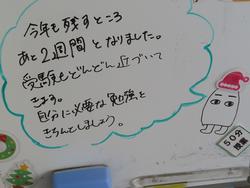 今年も残すところ
あと2週間となりました。
受験もどんどん近づいて
きます。
自分に必要な勉強を
きちんとしましょう。
50分
授業